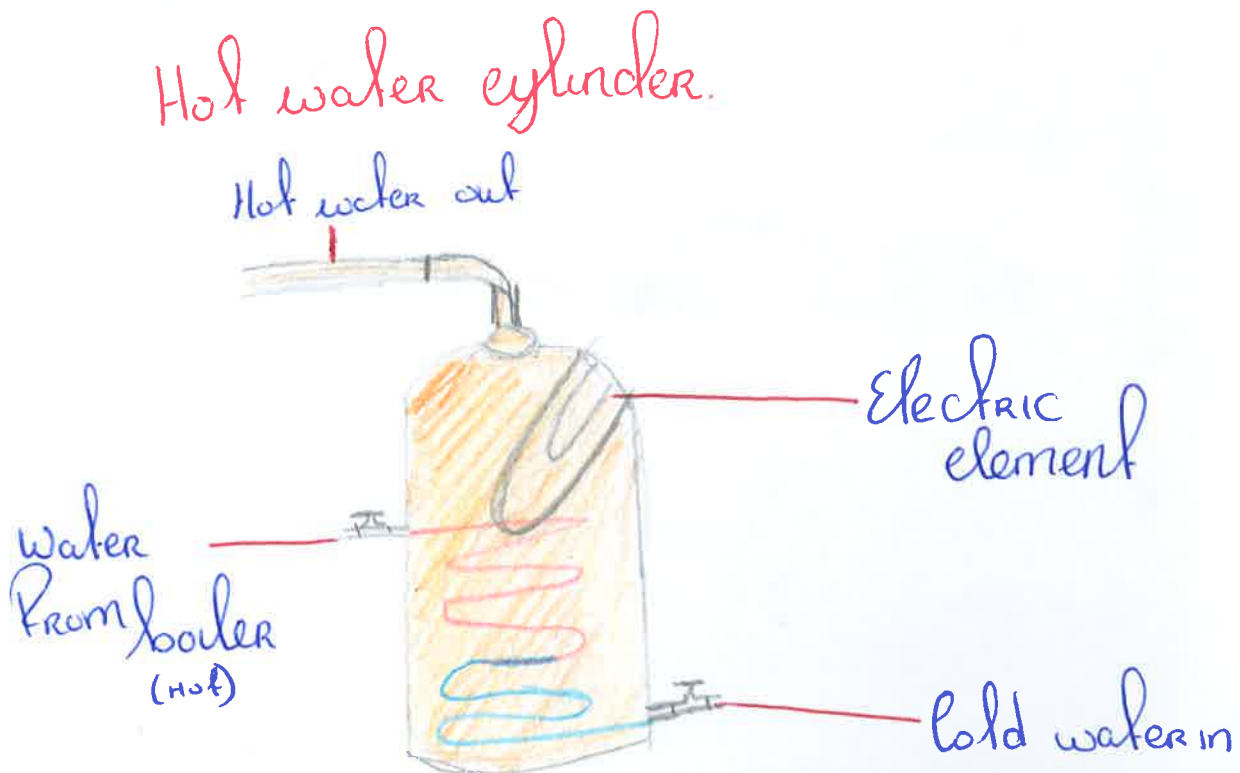 Hot water cylinder.
Hot water out
Electric
element
Water
From boiler
(Hot)
Cold water in